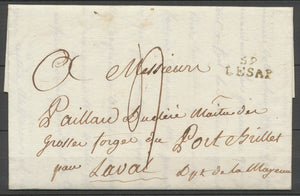 A Messieurs
59
LESAP
Paillau Ducléré Maître des
Grosses forges du Port Brillet
par Laval
Dpt de la Mayenne